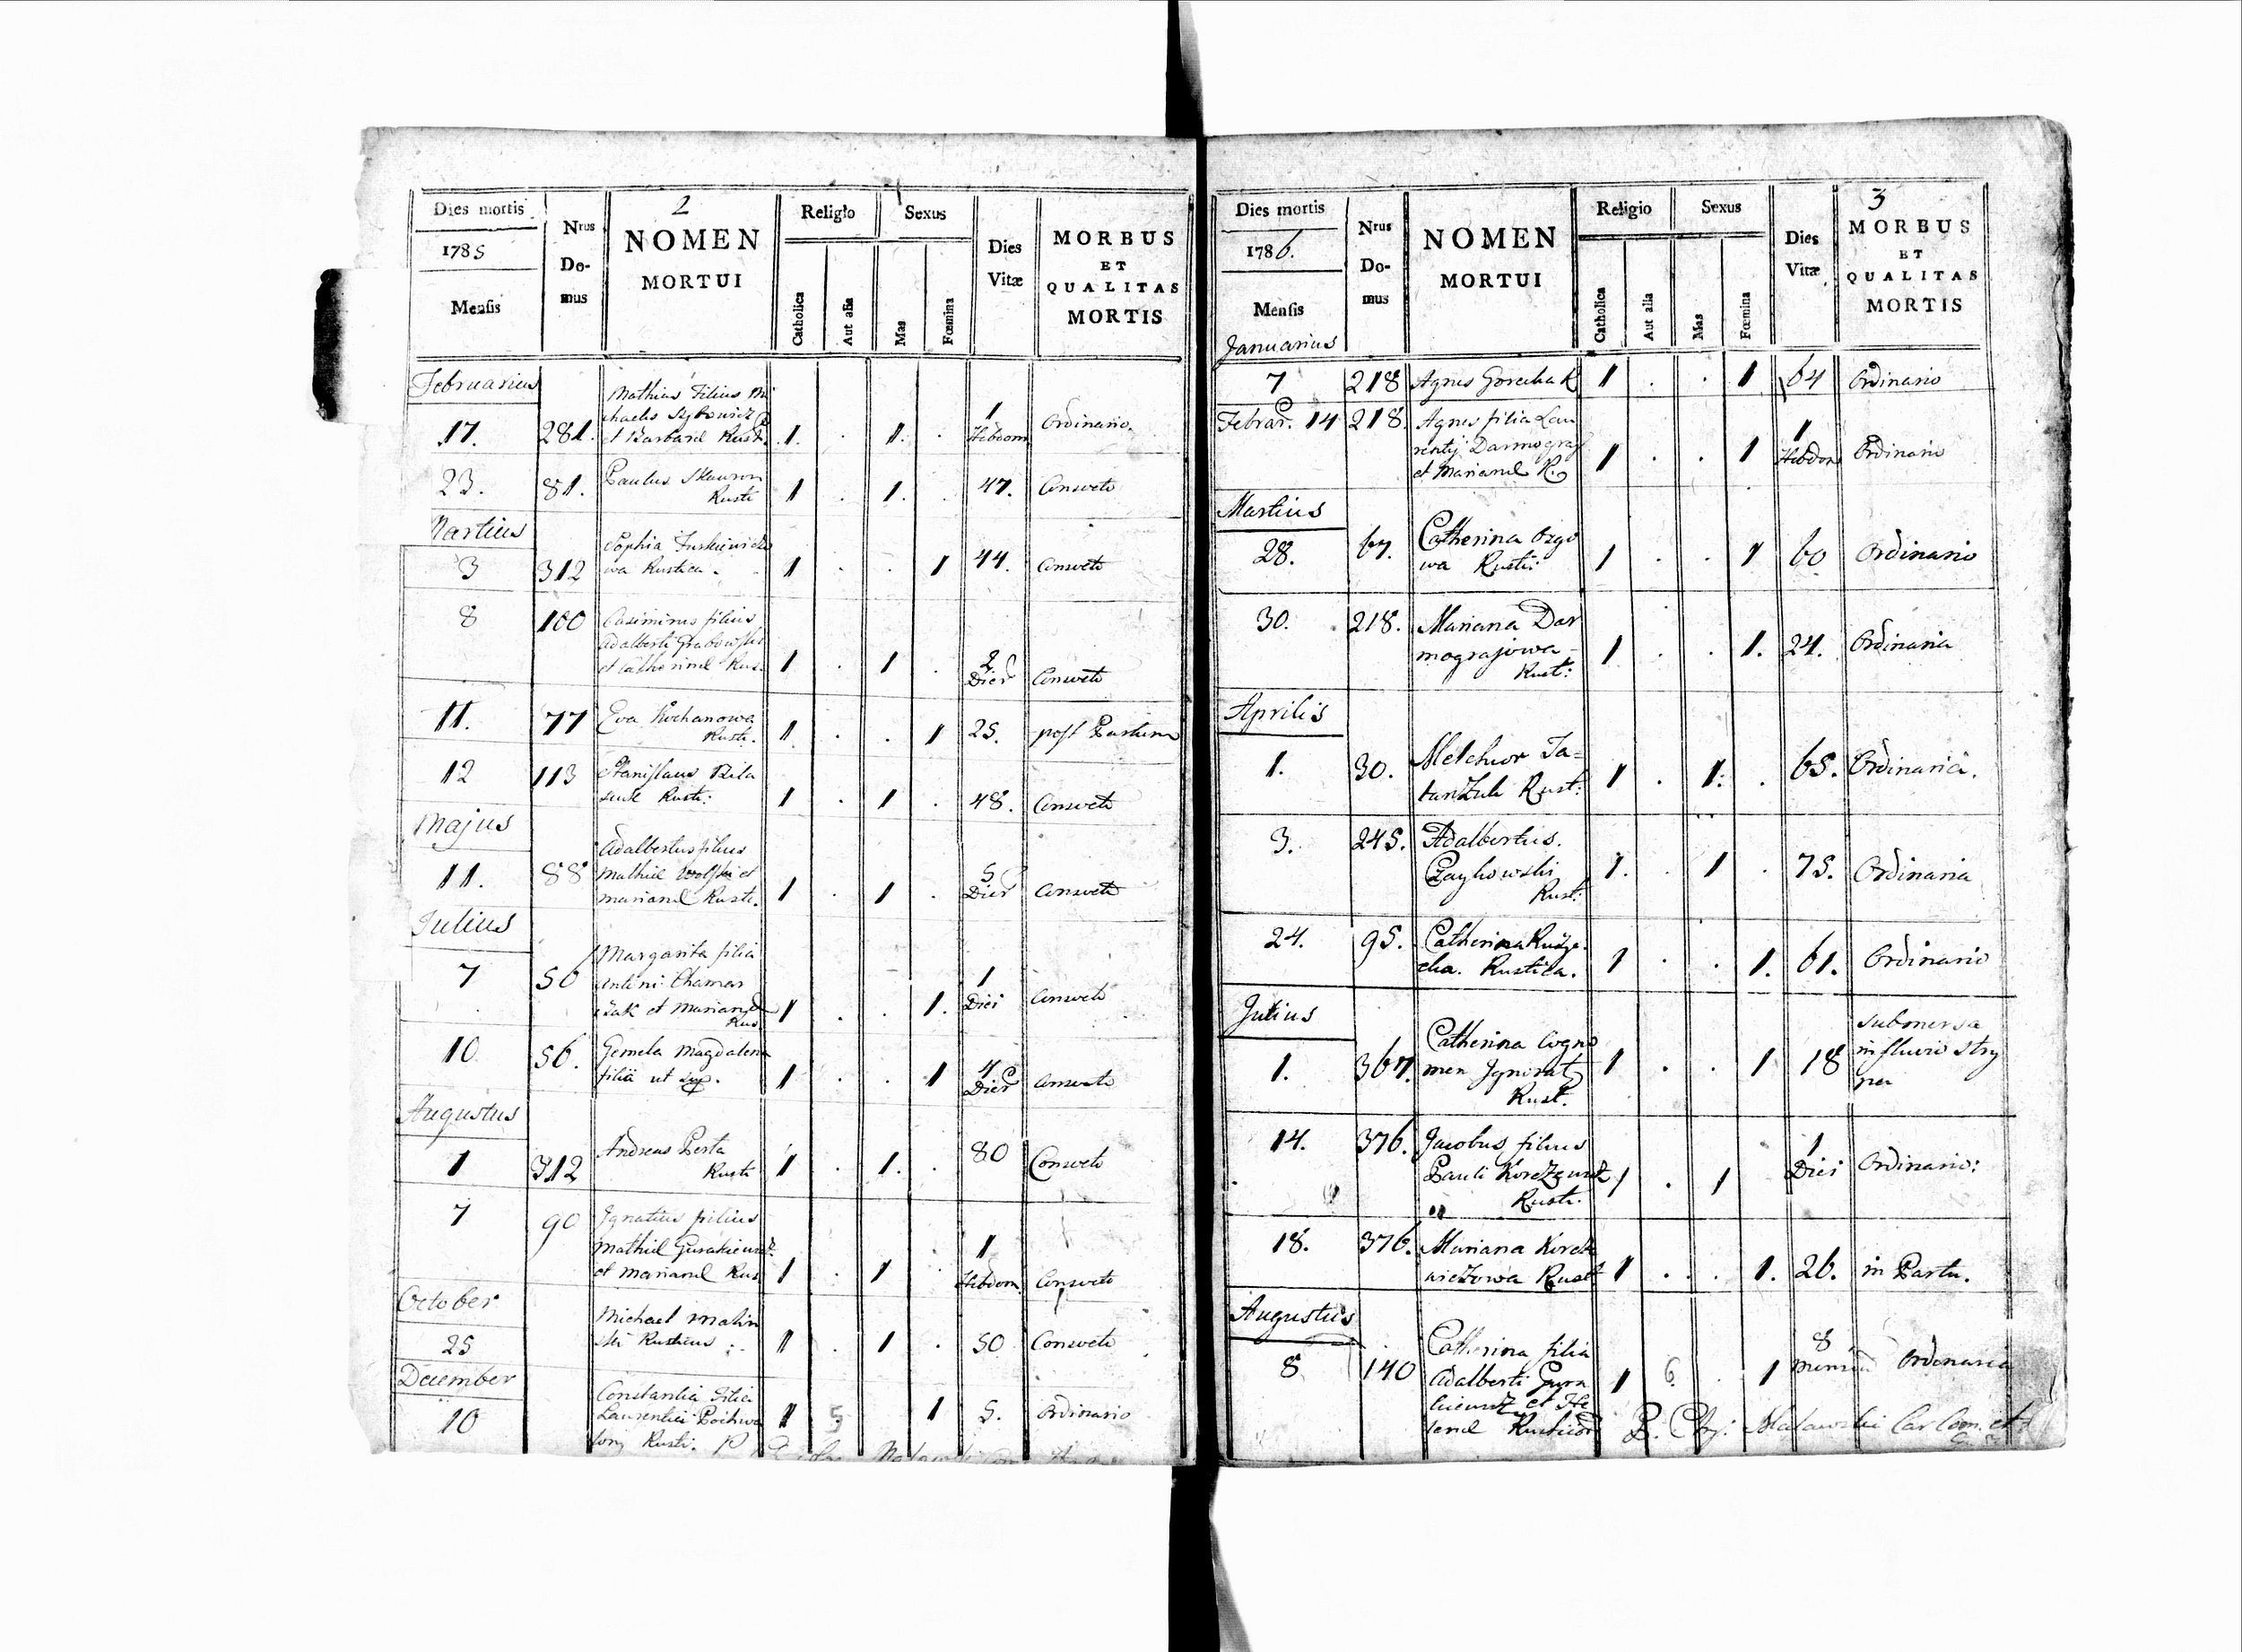 2
Dies mortis
1785
Mensis
Nrus
Do-
mus
NOMEN
MORTUI
Religio
Catholica
Aut alia
Sexus
Mas
Fœmina
Dies
Vitæ
MORBUS
ET
QUALITAS
MORTIS
Februarius
Mathias Filius Mi
chaelis
17. 281. et Barbarae Rust. 1. . 1. . 1 Hebdom Ordinario
23. 81. Paulus Skuron
Rusti 1 . 1. . 47. Consveto
Martius
Sophia
3 312 wa Rustica. 1 . . 1 44. Consveto
8 100 Casimirus filius
Adalberti Grabowski
et Catherinae Rus. 1 . 1 . 2 Dier Consveto
11. 77 Eva Kochanowa
Rusti. 1 . . 1 25. post Partum
12 113 Stanislaus
Rusti: 1 . 1 . 48. Consveto
Majus
Adalbertus filius
11. 88 Mathiae Wolski et
Marianae Rusti. 1 . 1 . 5 Dier Consveto
Julius
Margarita filia
7 56 Antoni Chamar
czuk et Marianae
Rus. 1 . . 1. 1 Diei Consveto
10 56. Gemela Magdalena
filia ut sup. 1 . . 1 4 Dier Consveto
Augustus
Andreas Perta
1 312 Rusti 1 . 1. . 80 Consveto
7 90 Ignatius filius
Mathiae
et Marianae Rus 1 . 1 . 1 Hebdom. Consveto
October
Michael Malin
25 ski Rusticus 1 . 1 . 50 Consveto
December
Constantia Filia
10 Laurentii 1 5 1 5. Ordinario
Rusti.
3
Dies mortis
1786.
Mensis
Nrus
Do-
mus
NOMEN
MORTUI
Religio
Catholica
Aut alia
Sexus
Mas
Fœmina
Dies
Vitæ
MORBUS
ET
QUALITAS
MORTIS
Januarius
7 218 Agnes Gorecka R 1 . . 1 64 Ordinario
Februar. 14 218. Agnes filia Lau
rentij Darmograj
et Marianae R. 1 . . 1 1 Hebdom Ordinario
Martius
28. 67. Catherina Ozgo
wa Rusti: 1 . . 1 60 Ordinario
30. 218. Mariana Dar
mograjowa
Rust: 1 . . 1. 24. Ordinaria
Aprilis
1. 30. Melchior Ta=
Rust: 1 . 1. . 65. Ordinaria.
3. 245. Adalbertus.
Czaykowski
Rust: 1. . 1 . 75. Ordinaria
24. 95. Catherina
cka. Rustica. 1 . . 1. 61. Ordinario
Julius
Catherina Cogno
1. 367. men Ignorat
Rust. 1 . . 1 18 submersa
in fluvio Stry
pa
14. 376. Jacobus filius
Pauli
Rusti. 1 . 1 1 Diei Ordinario:
18. 376. Mariana Korcz
Rust 1 . . 1. 26. in Partu.
Augustus
8 140 Catherina filia
Adalberti Gura
et He
lenae Rusticor 1 6. . 1 8 mensium Ordinaria